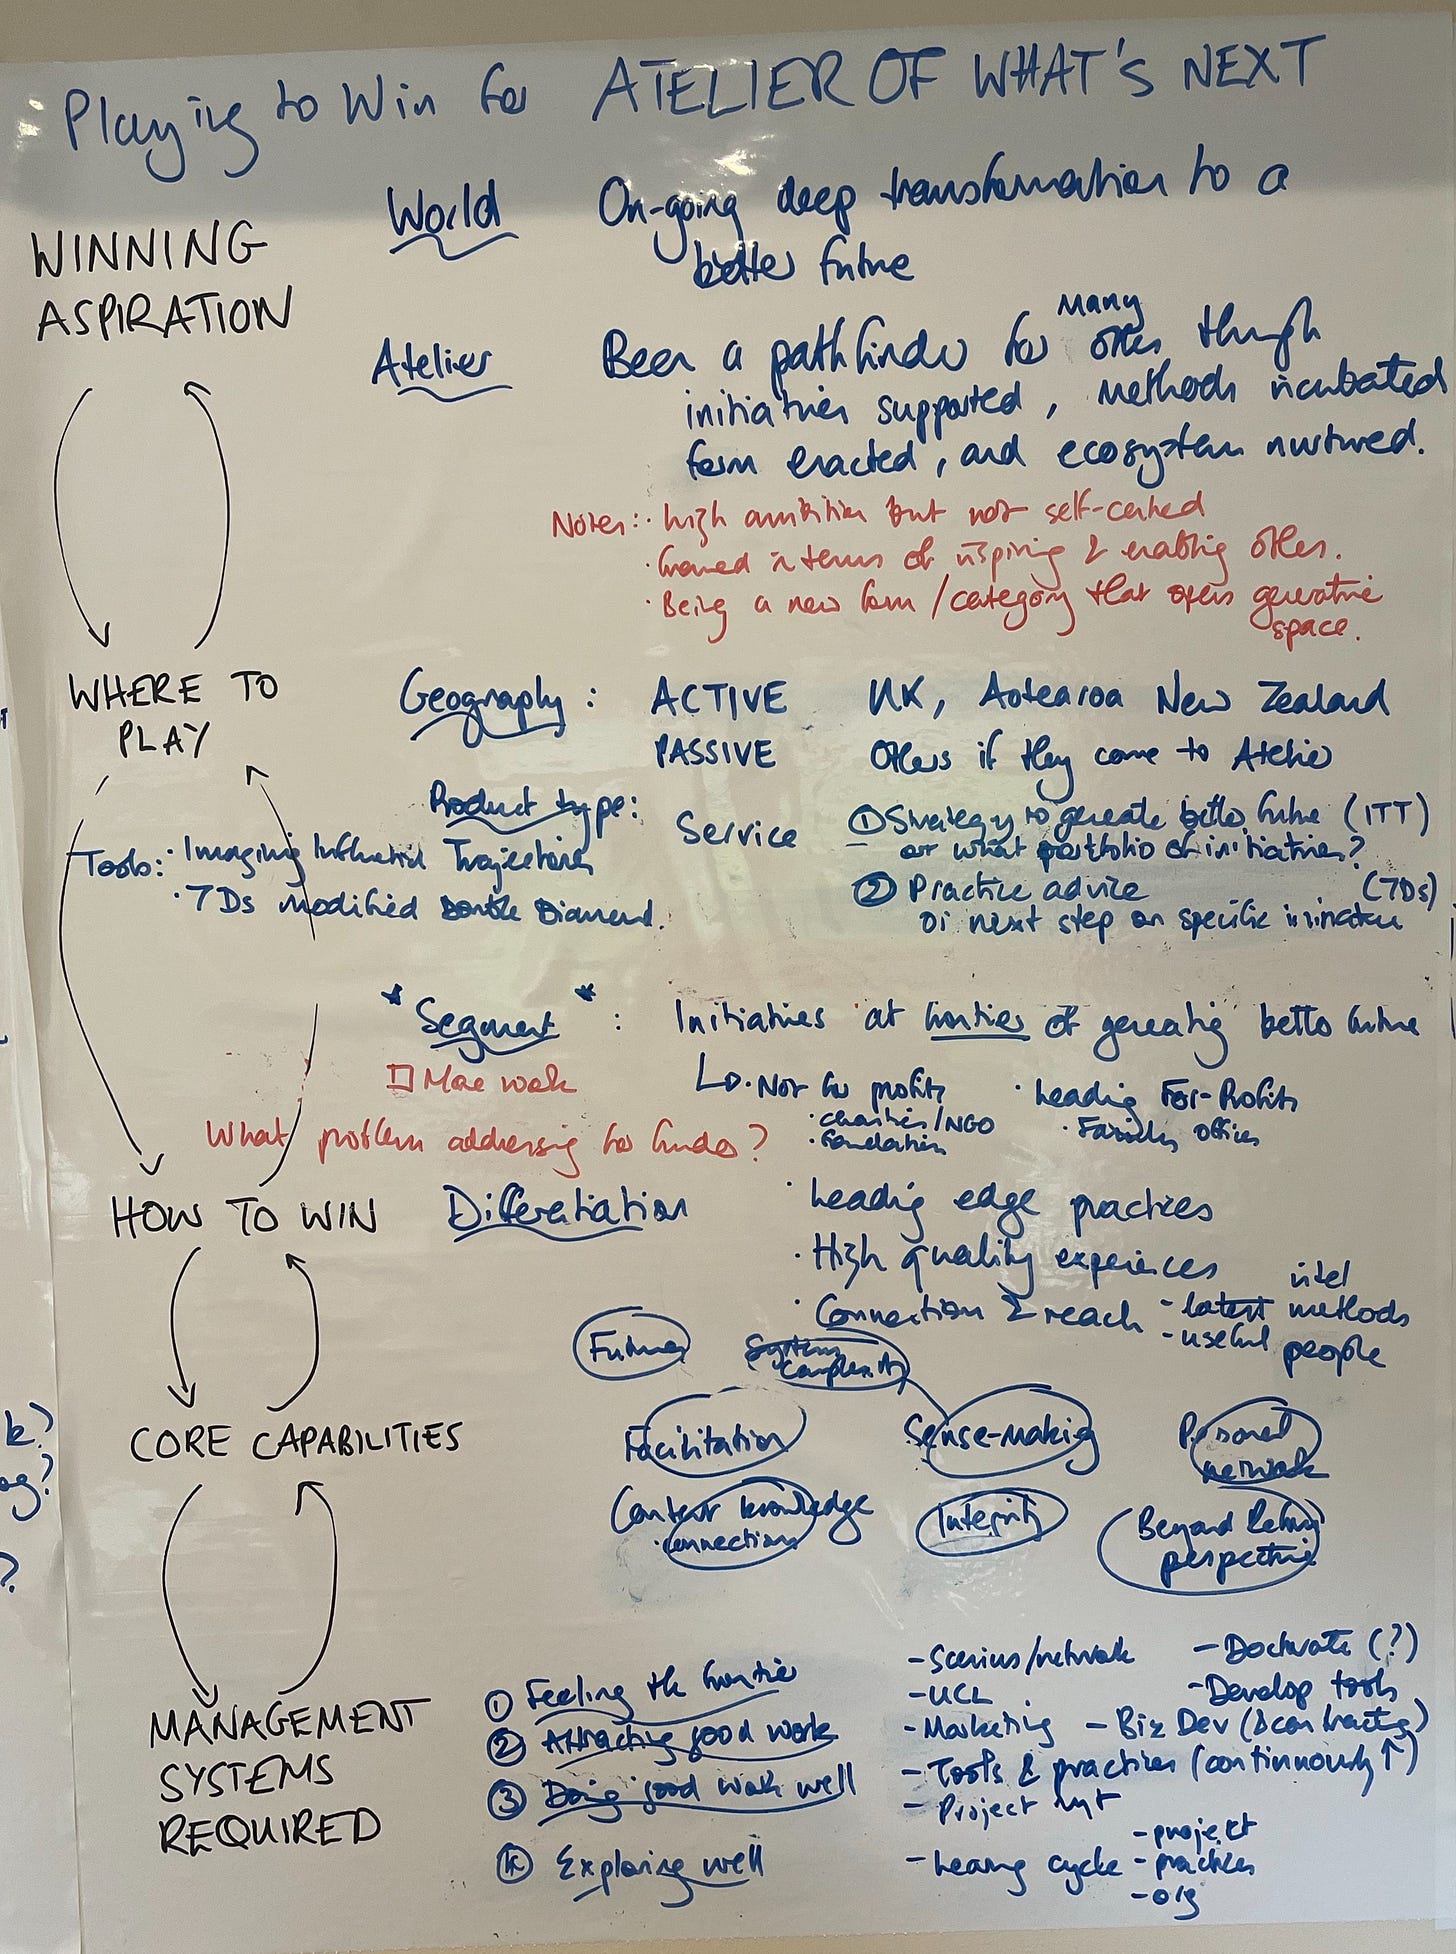 Playing to Win for ATELIER OF WHAT'S NEXT
WINNING
ASPIRATION
World
On-going deep transformation to a
better future
Atelier
Many
Been a pathfinder for others through
initiatives supported, methods incubated
form enacted, and ecosystem nurtured.
Notes: · high ambition but not self-centred
· framed in terms of inspiring & enabling others.
· Being a new form/category that opens generative
space.
WHERE TO
PLAY
Geography:
ACTIVE UK, Aotearoa New Zealand
PASSIVE Others if they come to Atelier
Product type:
Service
① Strategy to generate better future (ITT)
or what portfolio of initiatives?
② Practice advice (7Ds)
next step on specific initiative
Tools: · Imaging Influential Trajectories
· 7Ds modified Double Diamond.
* Segment * : Initiatives at frontier of generating better future
□ More work
· Not for profits
· charities/NGO
· Foundations
· Leading For-Profits
· Family offices
What problem addressing for funder?
HOW TO WIN
Differentiation
· Leading edge practices
· High quality experiences
· Connection & reach - latest intel methods
- useful people
CORE CAPABILITIES
Futures
Systems
complexity
Facilitation
Sense-making
Personal
network
Content knowledge
· connections
Integrity
Beyond
perspective
MANAGEMENT
SYSTEMS
REQUIRED
① Feeling the frontier
- Scenius/network - Doctorate (?)
- UCL - Develop tools
② Attracting good work
- Marketing - Biz Dev (& contracting)
③ Doing good work well
- Tools & practices (continuously ↑)
- Project mgt
④ Exploring well
- Learning cycle - project
- practices
- org
k?
?
?